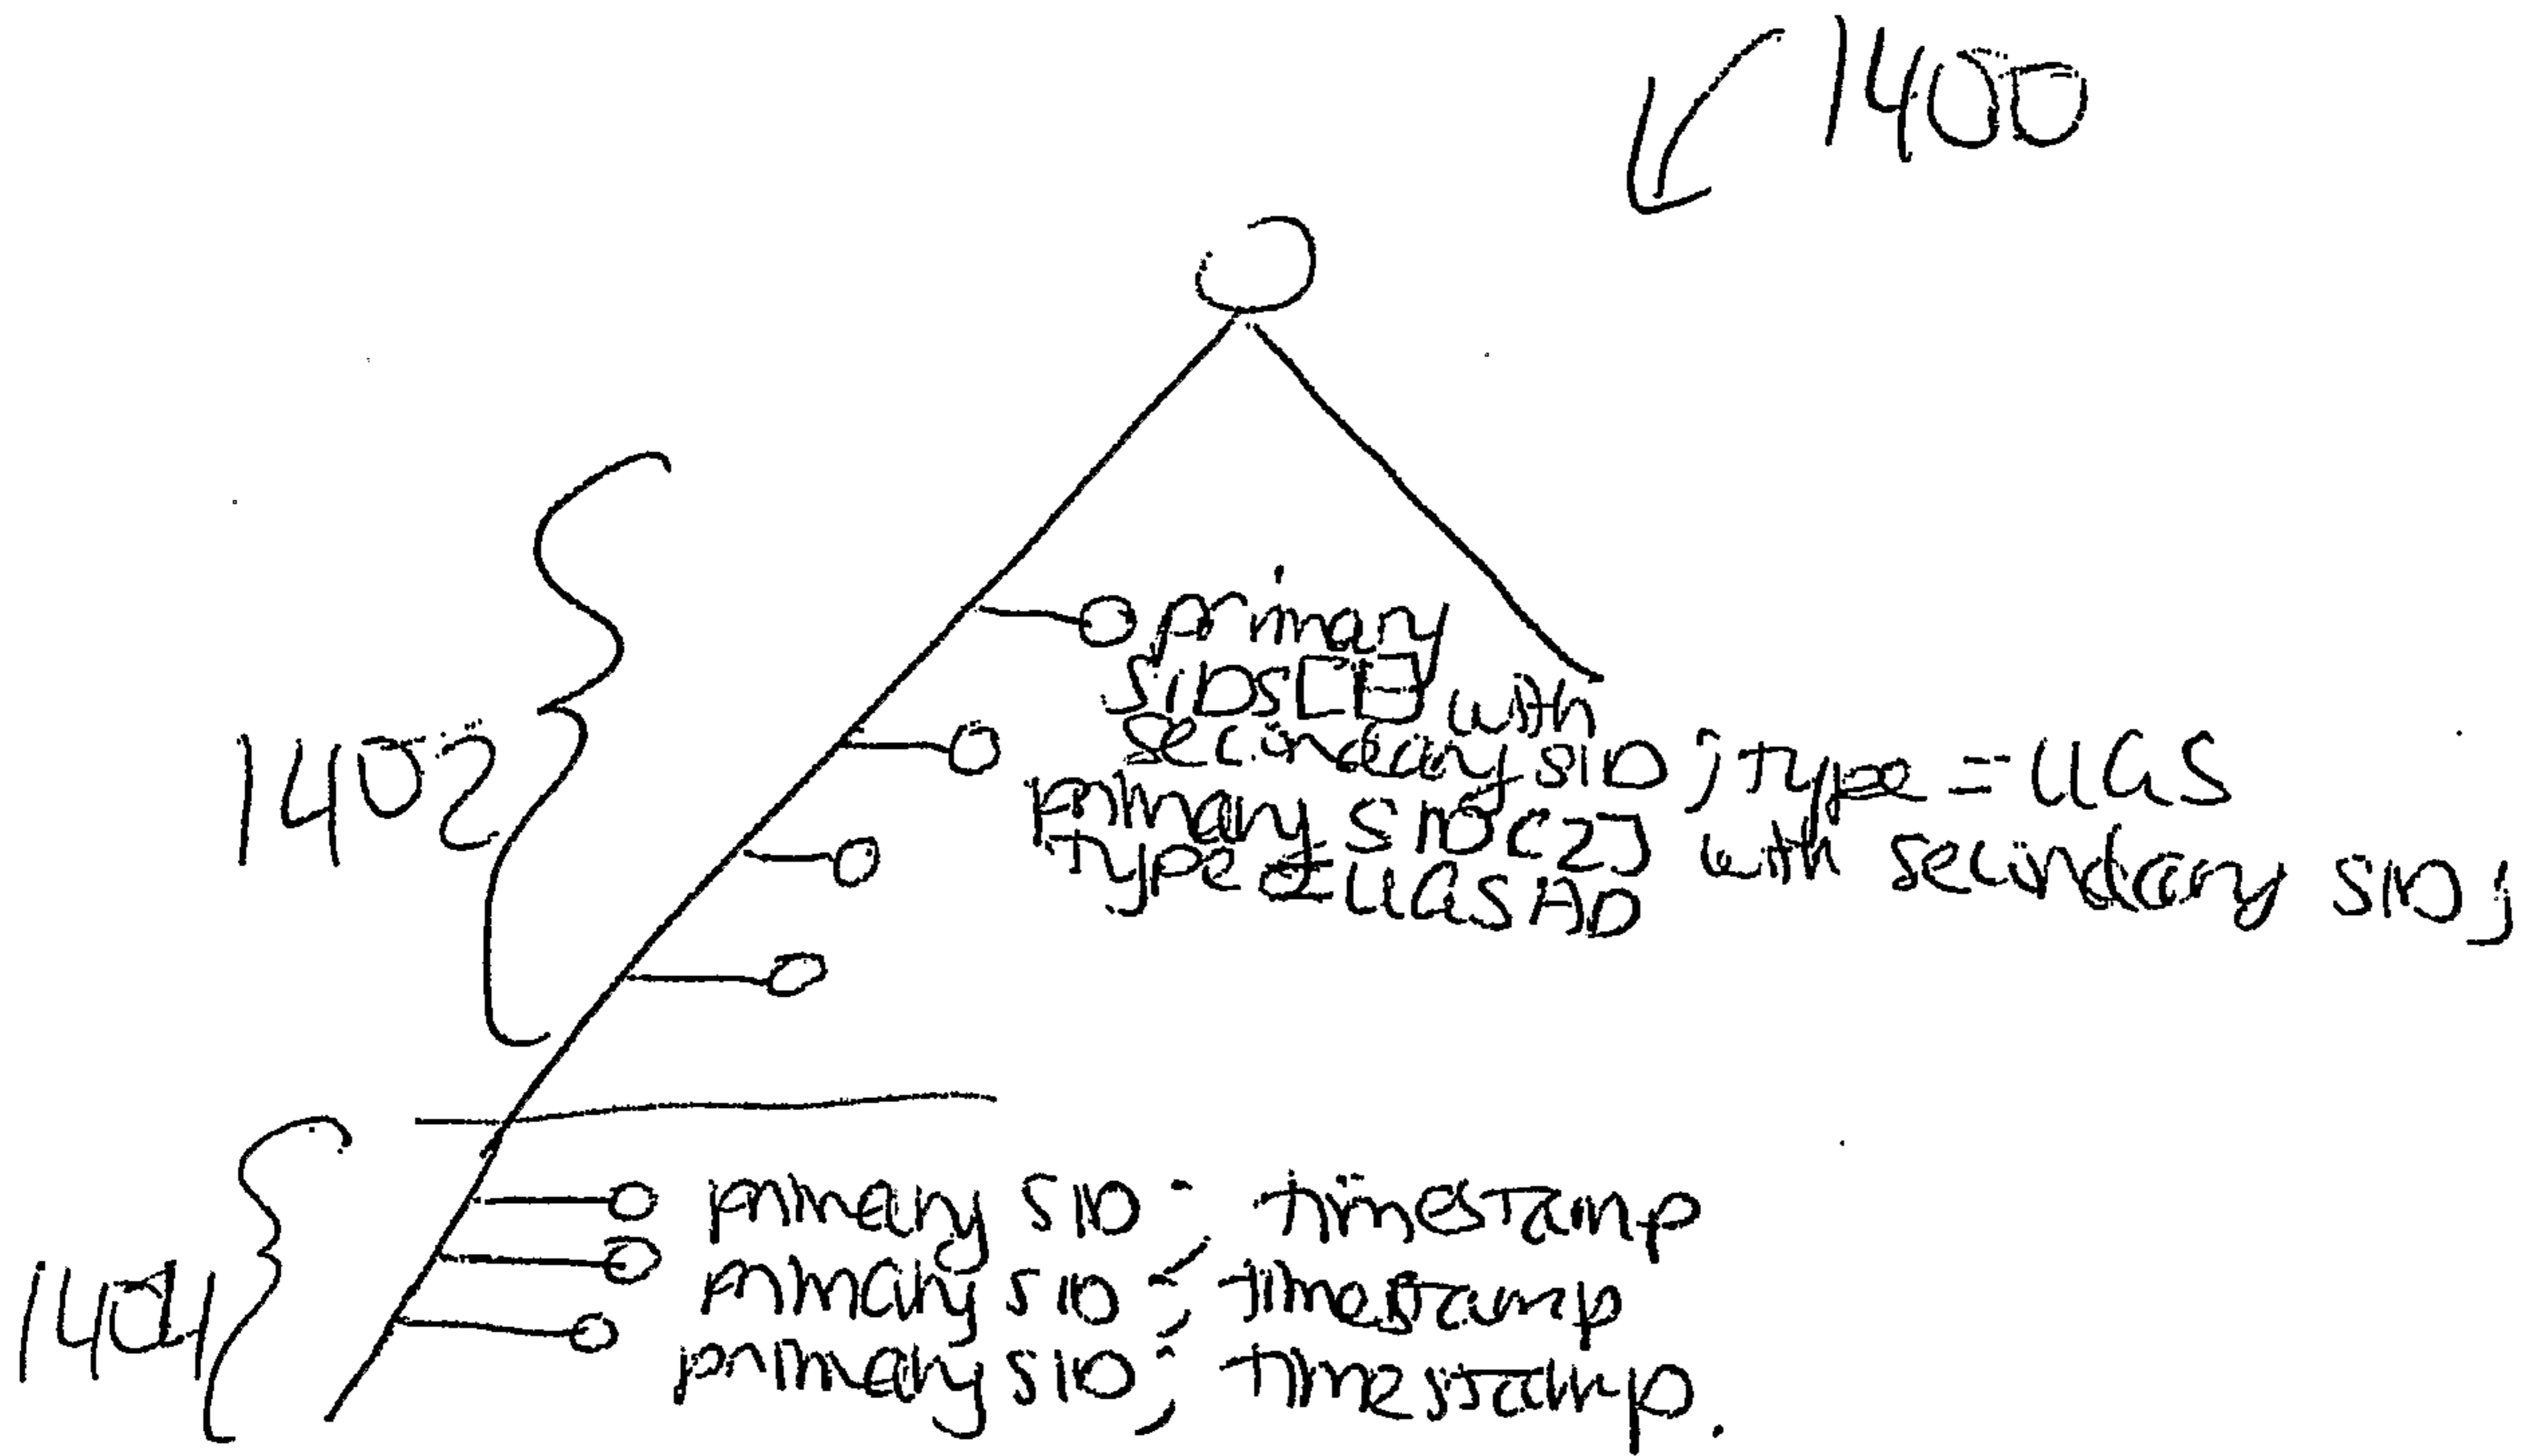 1400
primary
SIDS[1] with
secondary SID; type = UGS
primary SID[2] with secondary SID;
type = UGSAD
1402
primary SID; timestamp
primary SID; timestamp
primary SID; timestamp.
1404